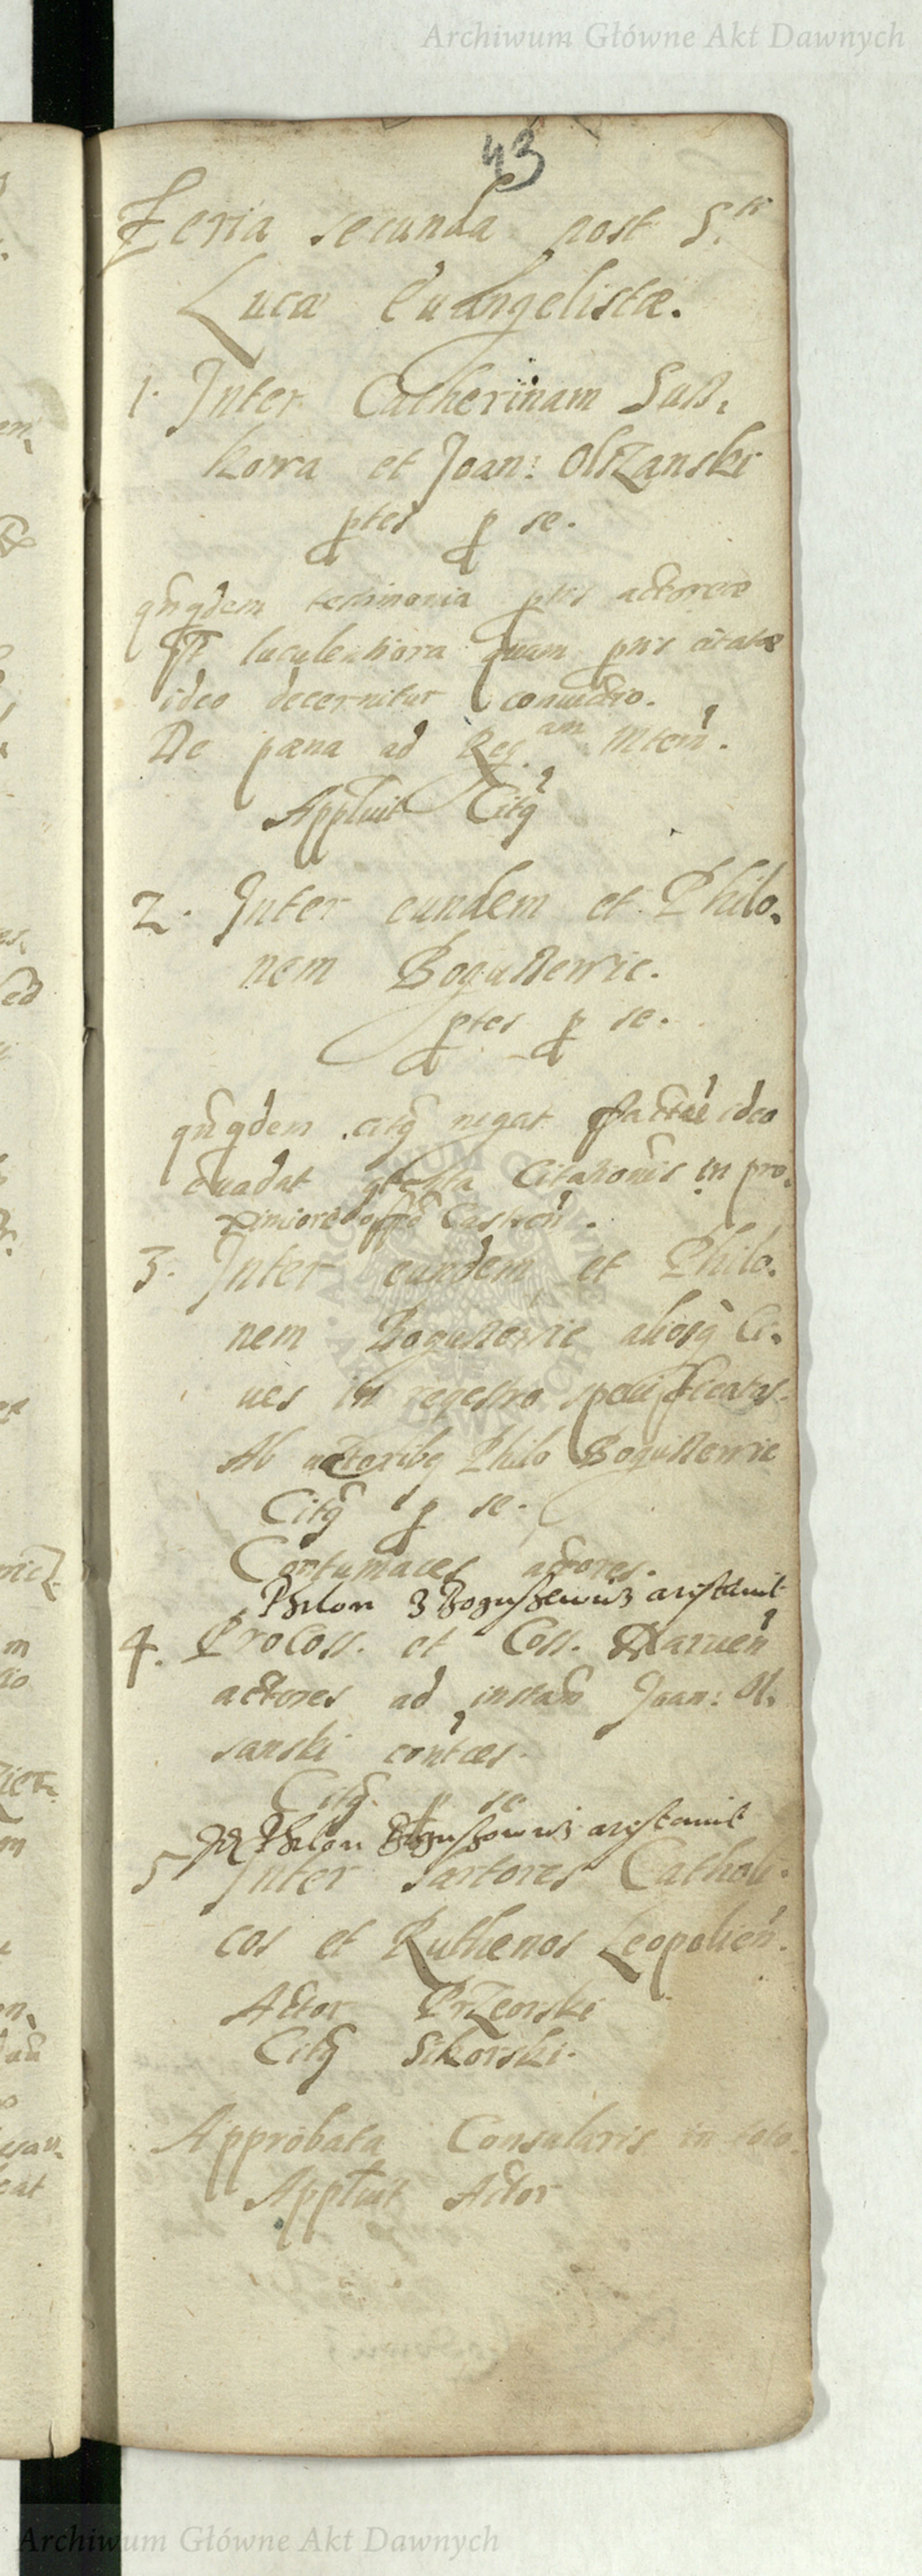 Archiwum Główne Akt Dawnych
43
Feria secunda post S.ti
Lucæ Euangelistæ.
1. Inter Catherinam Saß,
kowa et Joan: Olszanski
ptes p se.
qnqdem testimonia ptis actoreæ
st luculentiora quam ptis citatæ
ideo decernitur conuictio.
De pæna ad Reg.am Mtem.
Appluit Citq
2. Inter eundem et Philo,
nem Bogußewic.
ptes p se.
qnqdem citq negat factū ideo
euadat Citationis in pro,
ximiore offō Castren.
3. Inter eundem et Philo,
nem Bogußewic aliosq Ci,
ues in regestro specificatos.
Ab actoribq Philo Bogußewic
Citq p se.
Contumaces actores.
Philon Boguszewicz arestauit
4. Procoss. et Coss. Haruen
actores ad instam Joan: Ol,
sanski contces.
Citq p se
Philon Boguszowicz arestauit
5 Inter sartores Catholi,
cos et Ruthenos Leopolien.
Actor Przeorski
Citq Sikorski.
Approbata Consularis in toto.
Appluit Actor
Archiwum Główne Akt Dawnych